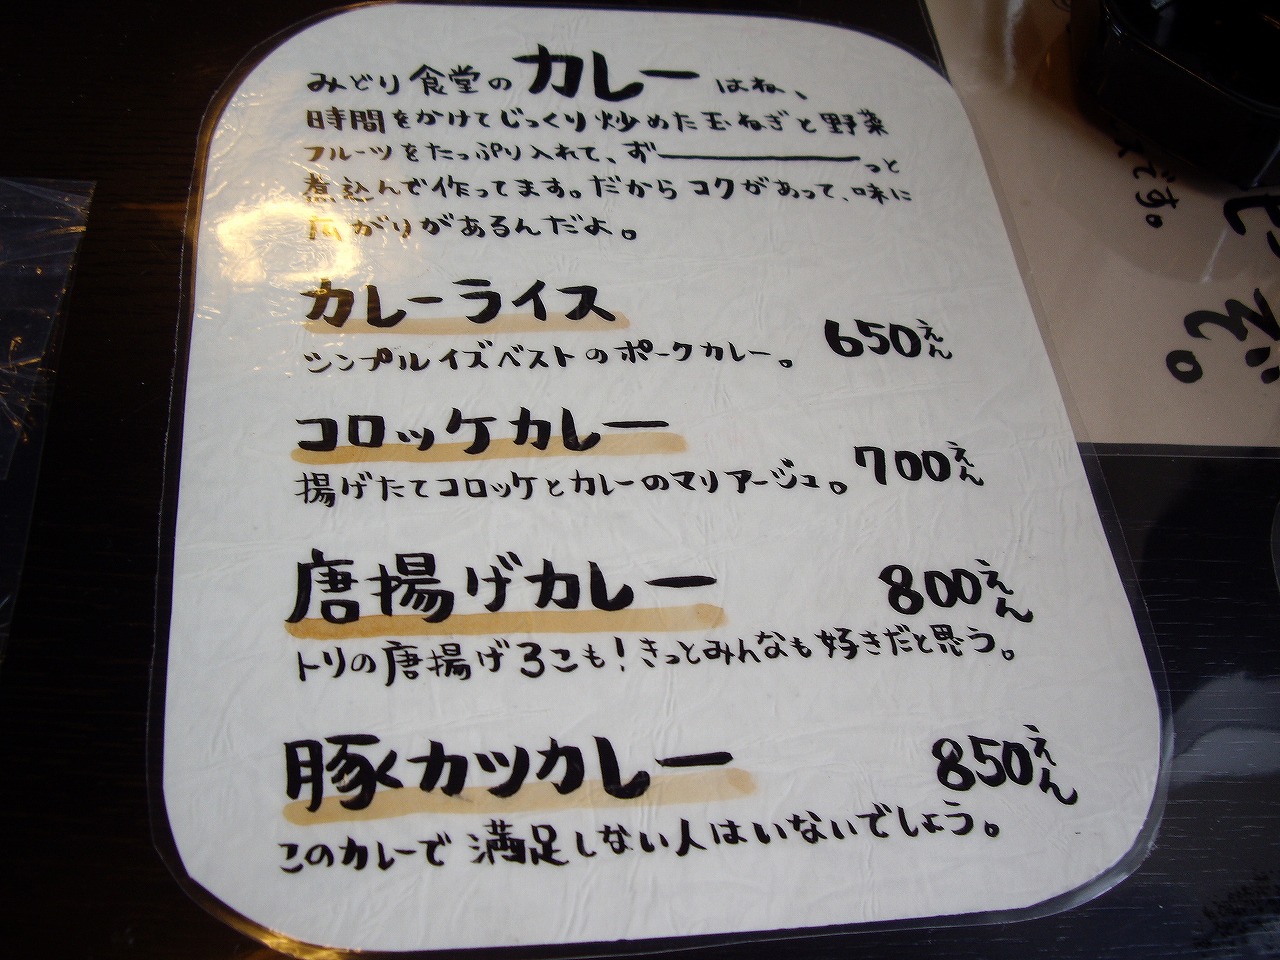 みどり食堂のカレーはね、
時間をかけてじっくり炒めた玉ねぎと野菜
フルーツをたっぷり入れて、ず――――っと
煮込んで作ってます。だからコクがあって、味に
広がりがあるんだよ。
カレーライス
シンプルイズベストのポークカレー。 650えん
コロッケカレー
揚げたてコロッケとカレーのマリアージュ。 700えん
唐揚げカレー 800えん
トリの唐揚げ3こも!きっとみんなも好きだと思う。
豚カツカレー 850えん
このカレーで満足しない人はいないでしょう。
です。
を。